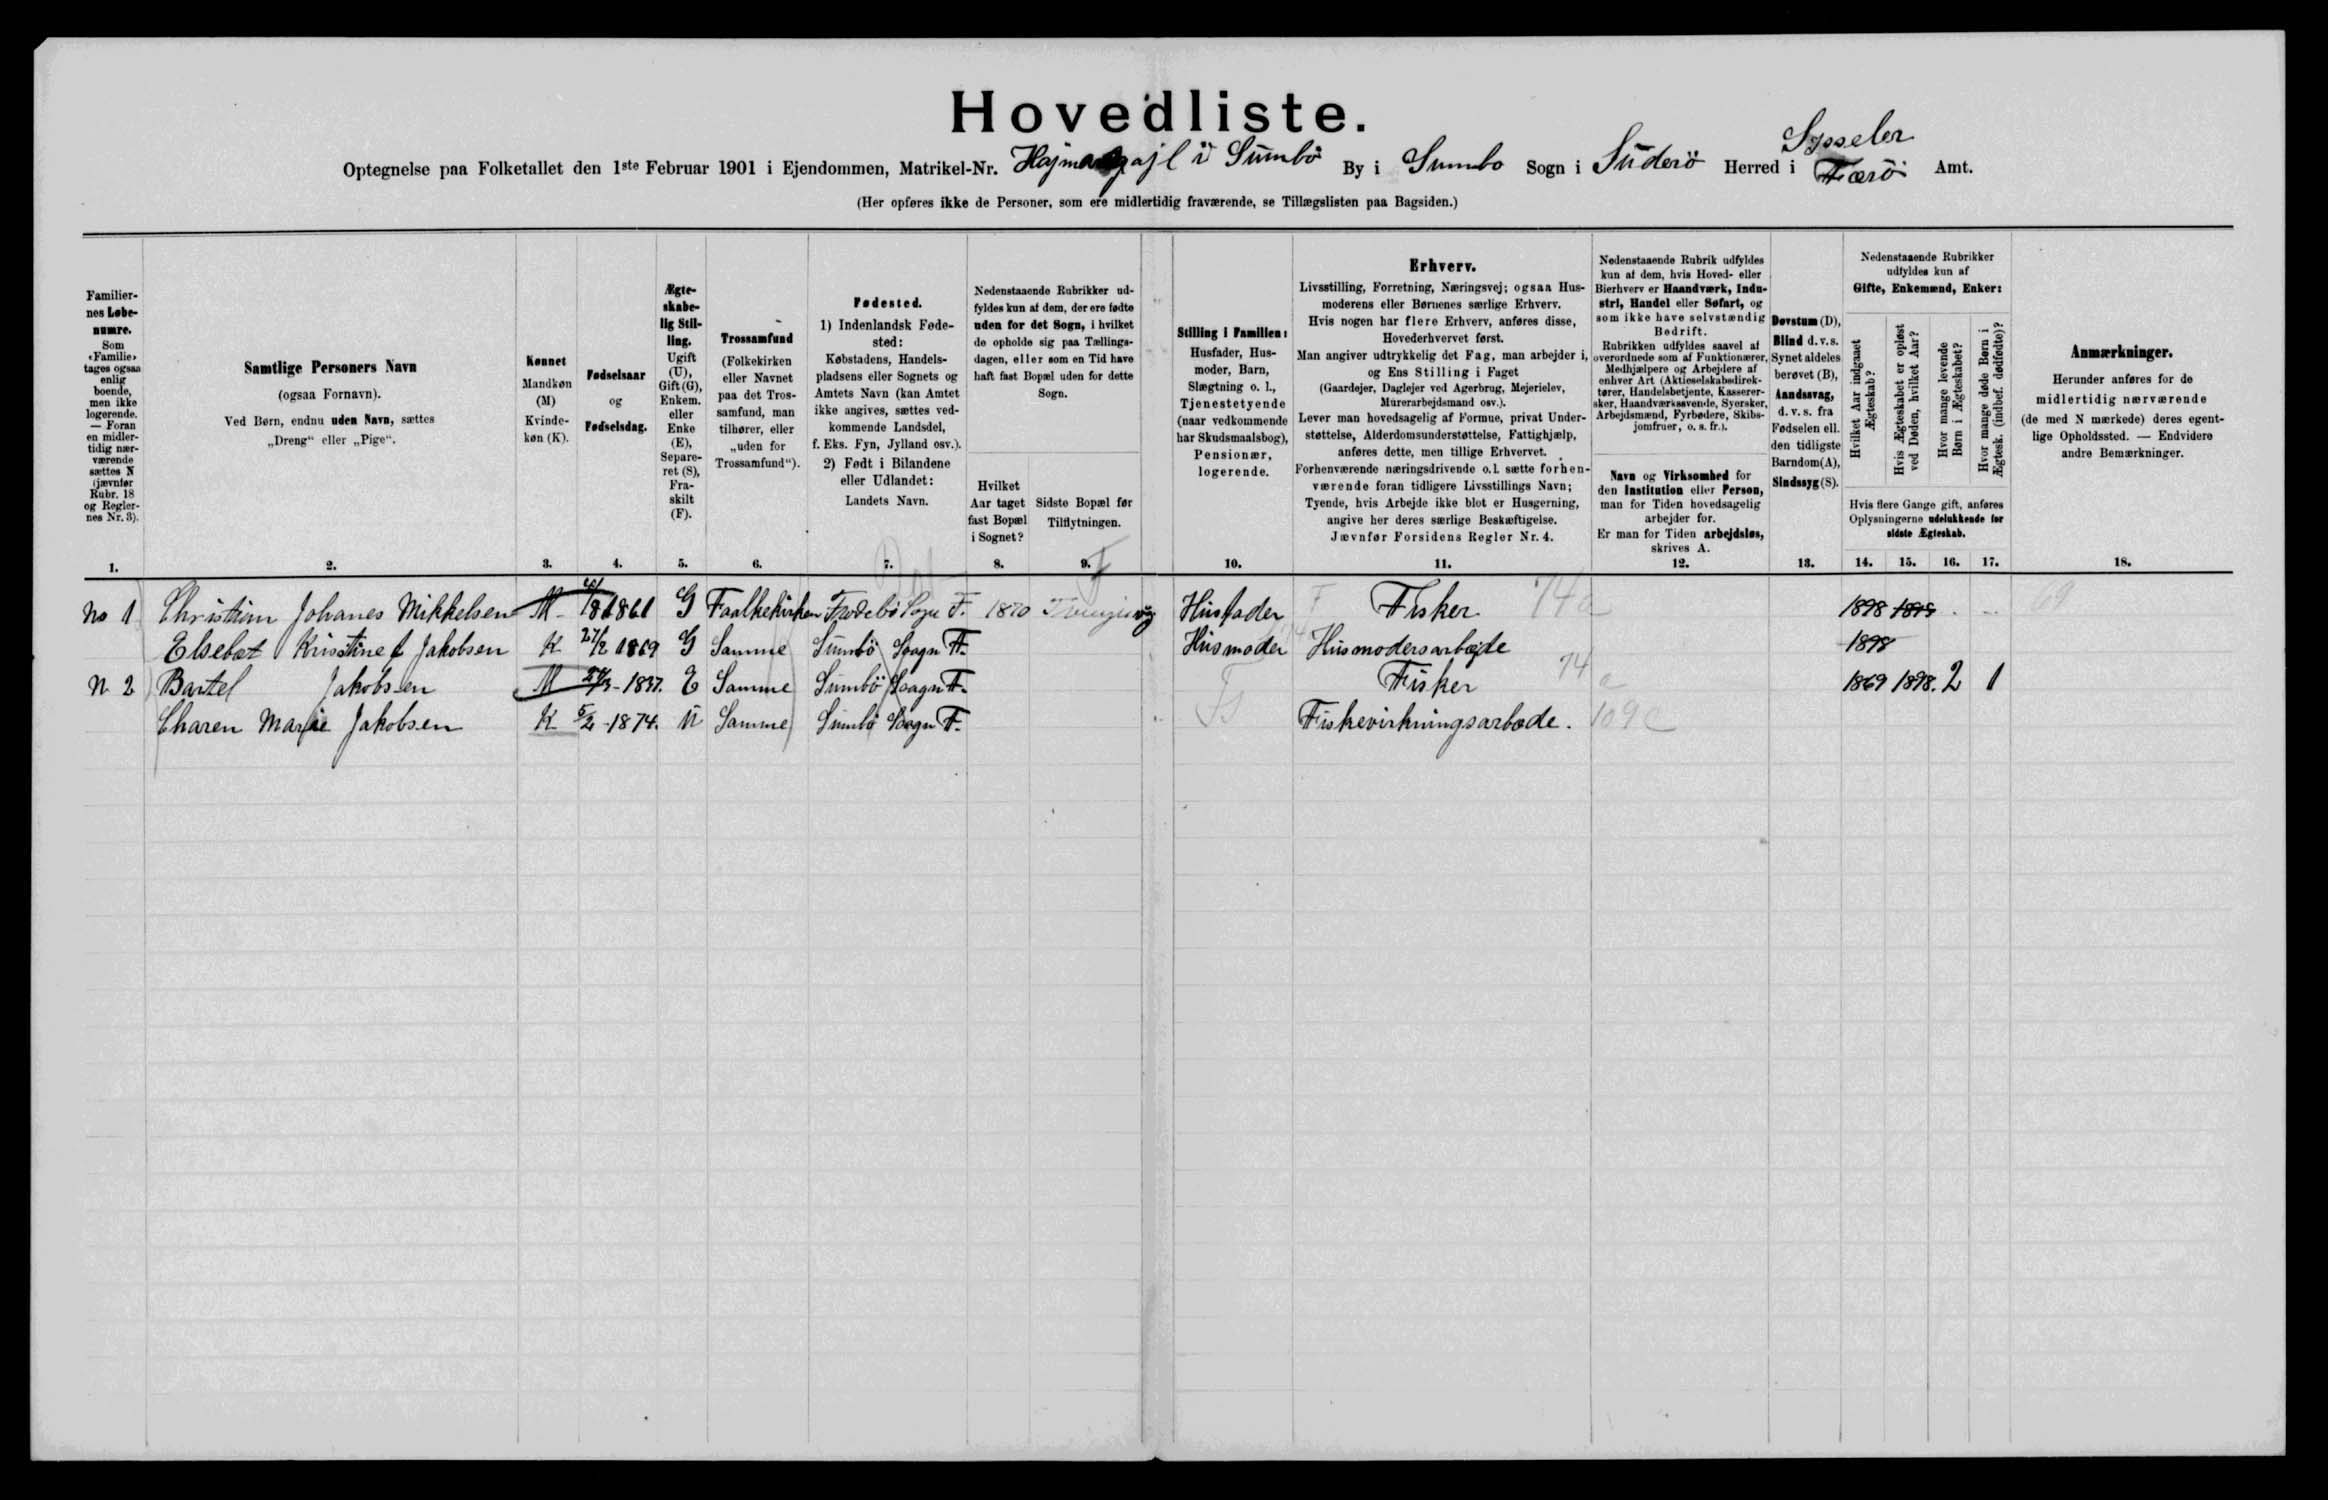 Hovedliste.
Optegnelse paa Folketallet den 1ste Februar 1901 i Ejendommen, Matrikel-Nr. i Sumbö By i Sumbo Sogn i Suderö Herred i Sysseler Færö Amt.
(Her opføres ikke de Personer, som ere midlertidig fraværende, se Tillægslisten paa Bagsiden.)
Familiernes Løbenumre. Som «Familie» tages ogsaa enlig boende, men ikke logerende. — Foran en midlertidig nærværende sættes N (jævnfør Rubr. 18 og Reglernes Nr. 3).
Samtlige Personers Navn (ogsaa Fornavn). Ved Børn, endnu uden Navn, sættes „Dreng“ eller „Pige“.
Kønnet Mandkøn (M) Kvindekøn (K).
Fødselsaar og Fødselsdag.
Ægteskabelig Stilling. Ugift (U), Gift (G), Enkem. eller Enke (E), Separeret (S), Fraskilt (F).
Trossamfund (Folkekirken eller Navnet paa det Trossamfund, man tilhører, eller „uden for Trossamfund“).
Fødested. 1) Indenlandsk Fødested: Købstadens, Handelspladsens eller Sognets og Amtets Navn (kan Amtet ikke angives, sættes vedkommende Landsdel, f. Eks. Fyn, Jylland osv.). 2) Født i Bilandene eller Udlandet: Landets Navn.
Nedenstaaende Rubrikker udfyldes kun af dem, der ere fødte uden for det Sogn, i hvilket de opholde sig paa Tællingsdagen, eller som en Tid have haft fast Bopæl uden for dette Sogn.
Hvilket Aar taget fast Bopæl i Sognet?
Sidste Bopæl før Tilflytningen.
Stilling i Familien: Husfader, Husmoder, Barn, Slægtning o. l., Tjenestetyende (naar vedkommende har Skudsmaalsbog), Pensionær, logerende.
Erhverv.
Livsstilling, Forretning, Næringsvej; ogsaa Husmoderens eller Børnenes særlige Erhverv.
Hvis nogen har flere Erhverv, anføres disse, Hovederhvervet først.
Man angiver udtrykkelig det Fag, man arbejder i, og Ens Stilling i Faget
(Gaardejer, Daglejer ved Agerbrug, Mejerielev, Murerarbejdsmand osv.).
Lever man hovedsagelig af Formue, privat Understøttelse, Alderdomsunderstøttelse, Fattighjælp, anføres dette, men tillige Erhvervet.
Forhenværende næringsdrivende o. l. sætte forhenværende foran tidligere Livsstillings Navn;
Tyende, hvis Arbejde ikke blot er Husgerning, angive her deres særlige Beskæftigelse.
Jævnfør Forsidens Regler Nr. 4.
Nedenstaaende Rubrik udfyldes kun af dem, hvis Hoved- eller Bierhverv er Haandværk, Industri, Handel eller Søfart, og som ikke have selvstændig Bedrift.
Rubrikken udfyldes saavel af overordnede som af Funktionærer, Medhjælpere og Arbejdere af enhver Art (Aktieselskabsdirektører, Handelsbetjente, Kasserersker, Haandværkssvende, Syersker, Arbejdsmænd, Fyrbødere, Skibsjomfruer, o. s. fr.).
Navn og Virksomhed for den Institution eller Person, man for Tiden hovedsagelig arbejder for. Er man for Tiden arbejdsløs, skrives A.
Døvstum (D), Blind d. v. s. Synet aldeles berøvet (B), Aandssvag, d. v. s. fra Fødselen ell. den tidligste Barndom (A), Sindssyg (S).
Nedenstaaende Rubrikker udfyldes kun af Gifte, Enkemænd, Enker:
Hvilket Aar indgaaet Ægteskab?
Hvis Ægteskabet er opløst ved Døden, hvilket Aar?
Hvor mange levende Børn i Ægteskabet?
Hvor mange døde Børn i Ægtesk. (indbef. dødfødte)?
Hvis flere Gange gift, anføres Oplysningerne udelukkende for sidste Ægteskab.
Anmærkninger. Herunder anføres for de midlertidig nærværende (de med N mærkede) deres egentlige Opholdssted. — Endvidere andre Bemærkninger.
1. 2. 3. 4. 5. 6. 7. 8. 9. 10. 11. 12. 13. 14. 15. 16. 17. 18.
No 1 Christian Johanes Mikkelsen M 1861 G Faalkekirken F. 1870 Husfader F Fisker 74 a 1898 1895 69
Elsebet Kristine J Jakobsen K 27/2 1869 G Samme Sumbö Saagn F. Husmoder Husmodersarbejde 1898
N 2 Bartel Jakobsen M 1837. E Samme Sumbö Saagn F. Fisker 74 a 1869 1898. 2 1
Charen Marie Jakobsen K 5/2 - 1874. U Samme Sumbö Saagn F. Fs Fiskevirkningsarbæde. 109 c